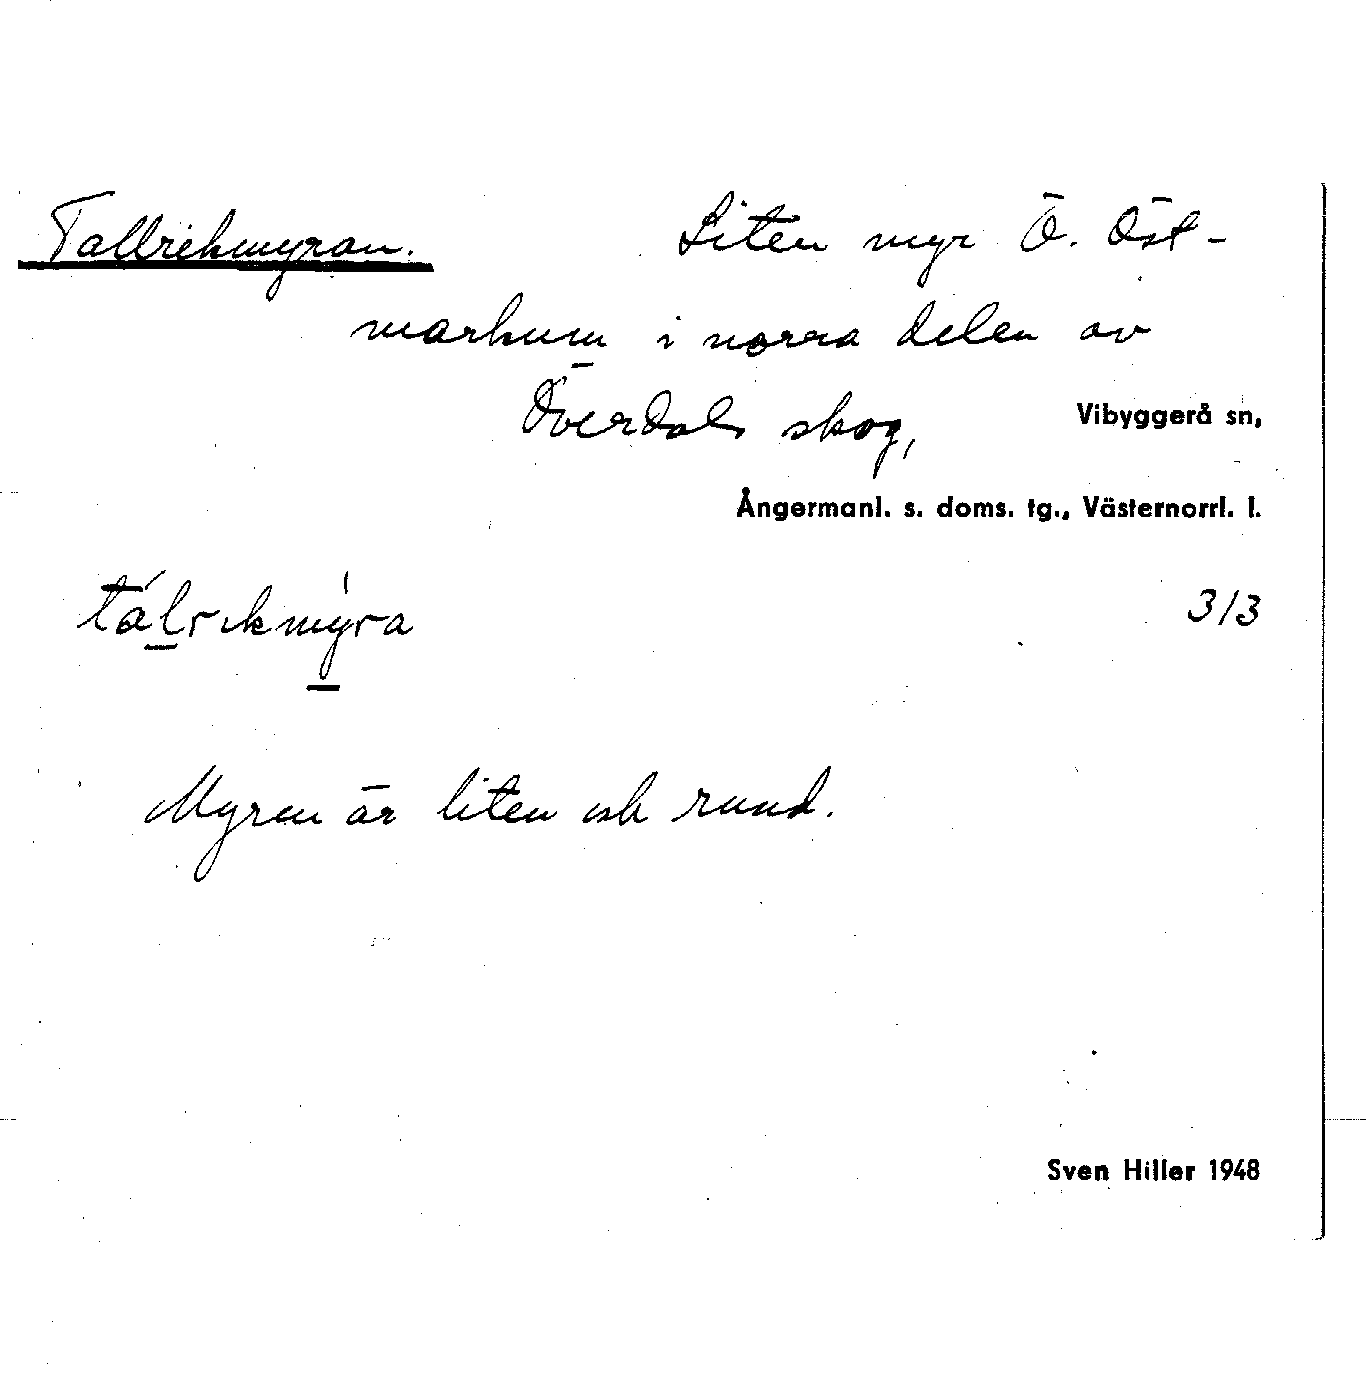 Tallrikmyran. Liten myr Ö. Öst-
markum i norra delen av
Överdals skog, Vibyggerå sn,
Ångermanl. s. doms. tg., Västernorrl. l.
tálrıkmýra 3/3
Myren är liten och rund.
Sven Hiller 1948